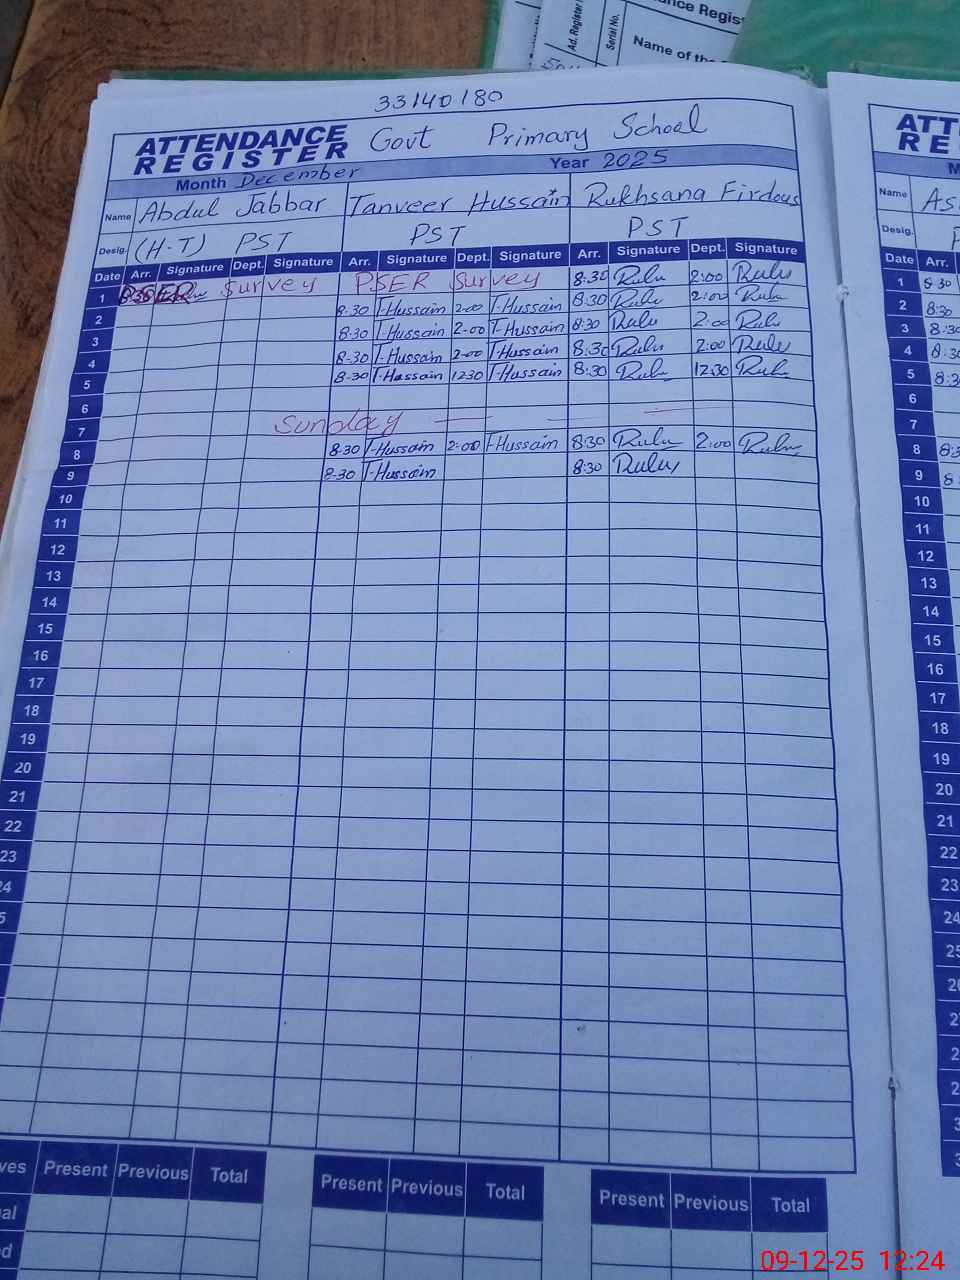 Ad. Register
Serial No.
nce Regis
Name of the
33140180
ATTENDANCE REGISTER Govt Primary School
Month December Year 2025
Name Abdul Jabbar Tanveer Hussain Rukhsana Firdous
Desig. (H-T) PST PST PST
Date Arr. Signature Dept. Signature Arr. Signature Dept. Signature Arr. Signature Dept. Signature
1 PSER Survey PSER Survey 8:30 Rulu 2:00 Rulu
2 8:30 T-Hussain 2-00 T-Hussain 8:30 Rulu 2:00 Rulu
3 8:30 T-Hussain 2-00 T-Hussain 8:30 Rulu 2:00 Rulu
4 8-30 T-Hussain 2-00 T-Hussain 8:30 Rulu 2:00 Rulu
5 8-30 T-Hussain 1230 T-Hussain 8:30 Rulu 12:30 Rulu
6
7 Sunday
8 8:30 T-Hussain 2:00 T-Hussain 8:30 Rulu 2:00 Rulu
9 8:30 T-Hussain 8:30 Rulu
10
11
12
13
14
15
16
17
18
19
20
21
22
23
24
5
ves Present Previous Total Present Previous Total Present Previous Total
al
d
ATT
RE
M
Name As
Desig. P
Date Arr.
1 8:30
2 8:30
3 8:30
4 8:30
5 8:30
6
7
8 8:3
9 8
10
11
12
13
14
15
16
17
18
19
20
21
22
23
24
25
26
2
2
2
3
3
09-12-25 12:24